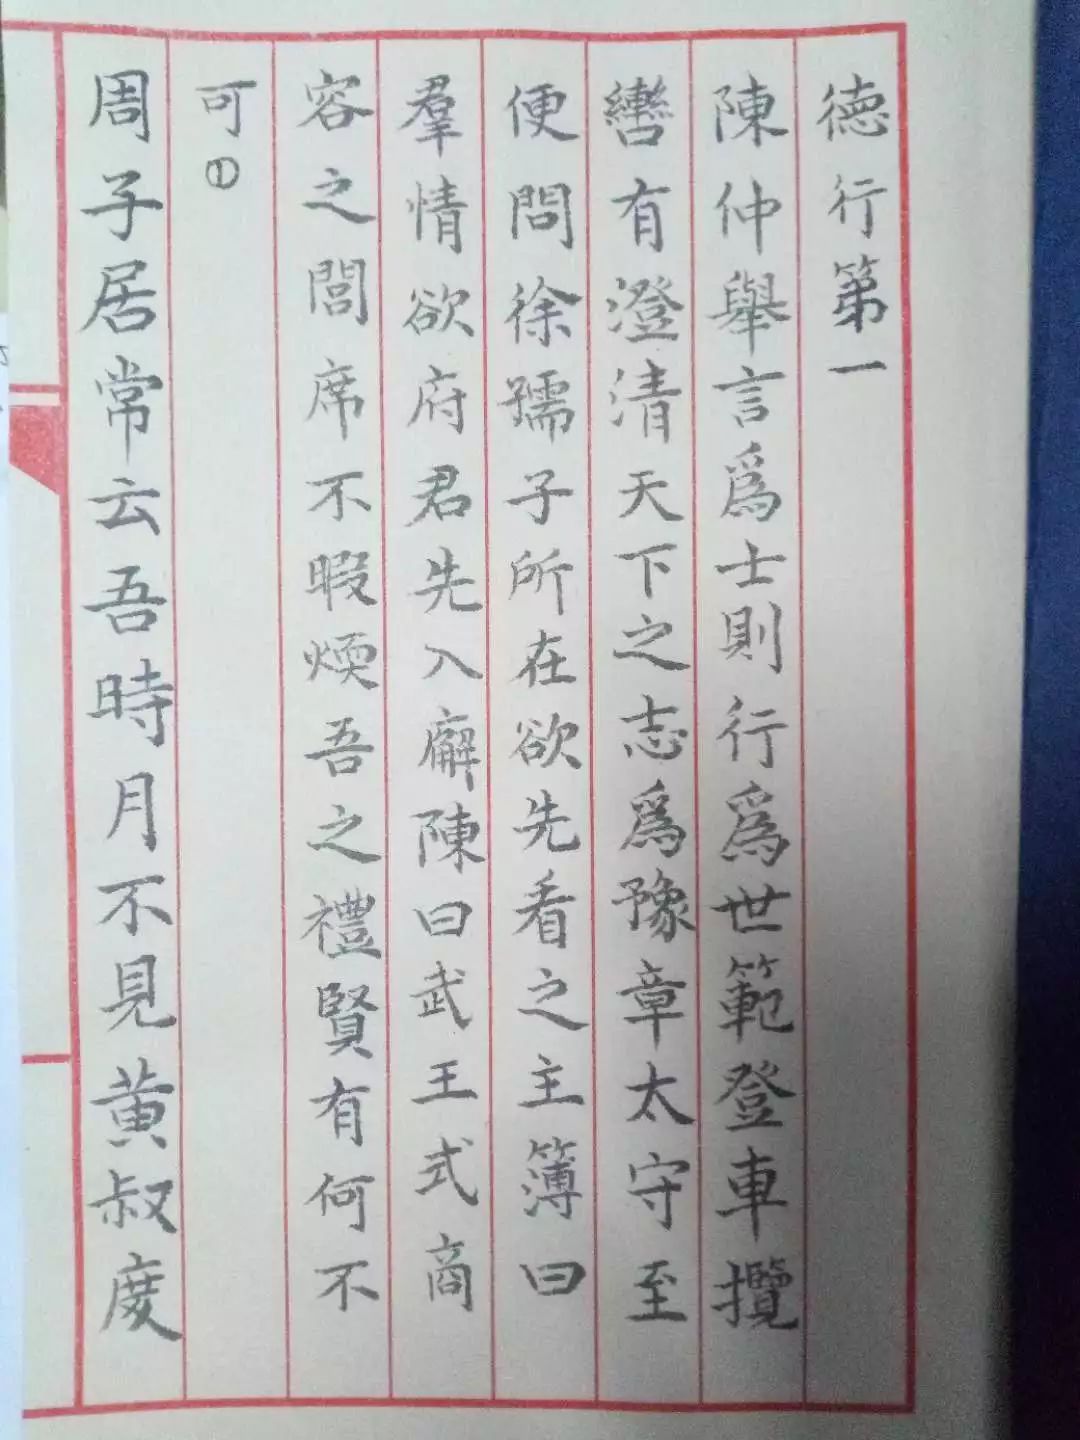 德行第一
陳仲舉言爲士則行爲世範登車攬
轡有澄清天下之志爲豫章太守至
便問徐孺子所在欲先看之主簿曰
羣情欲府君先入廨陳曰武王式商
容之閭席不暇煗吾之禮賢有何不
可①
周子居常云吾時月不見黄叔度